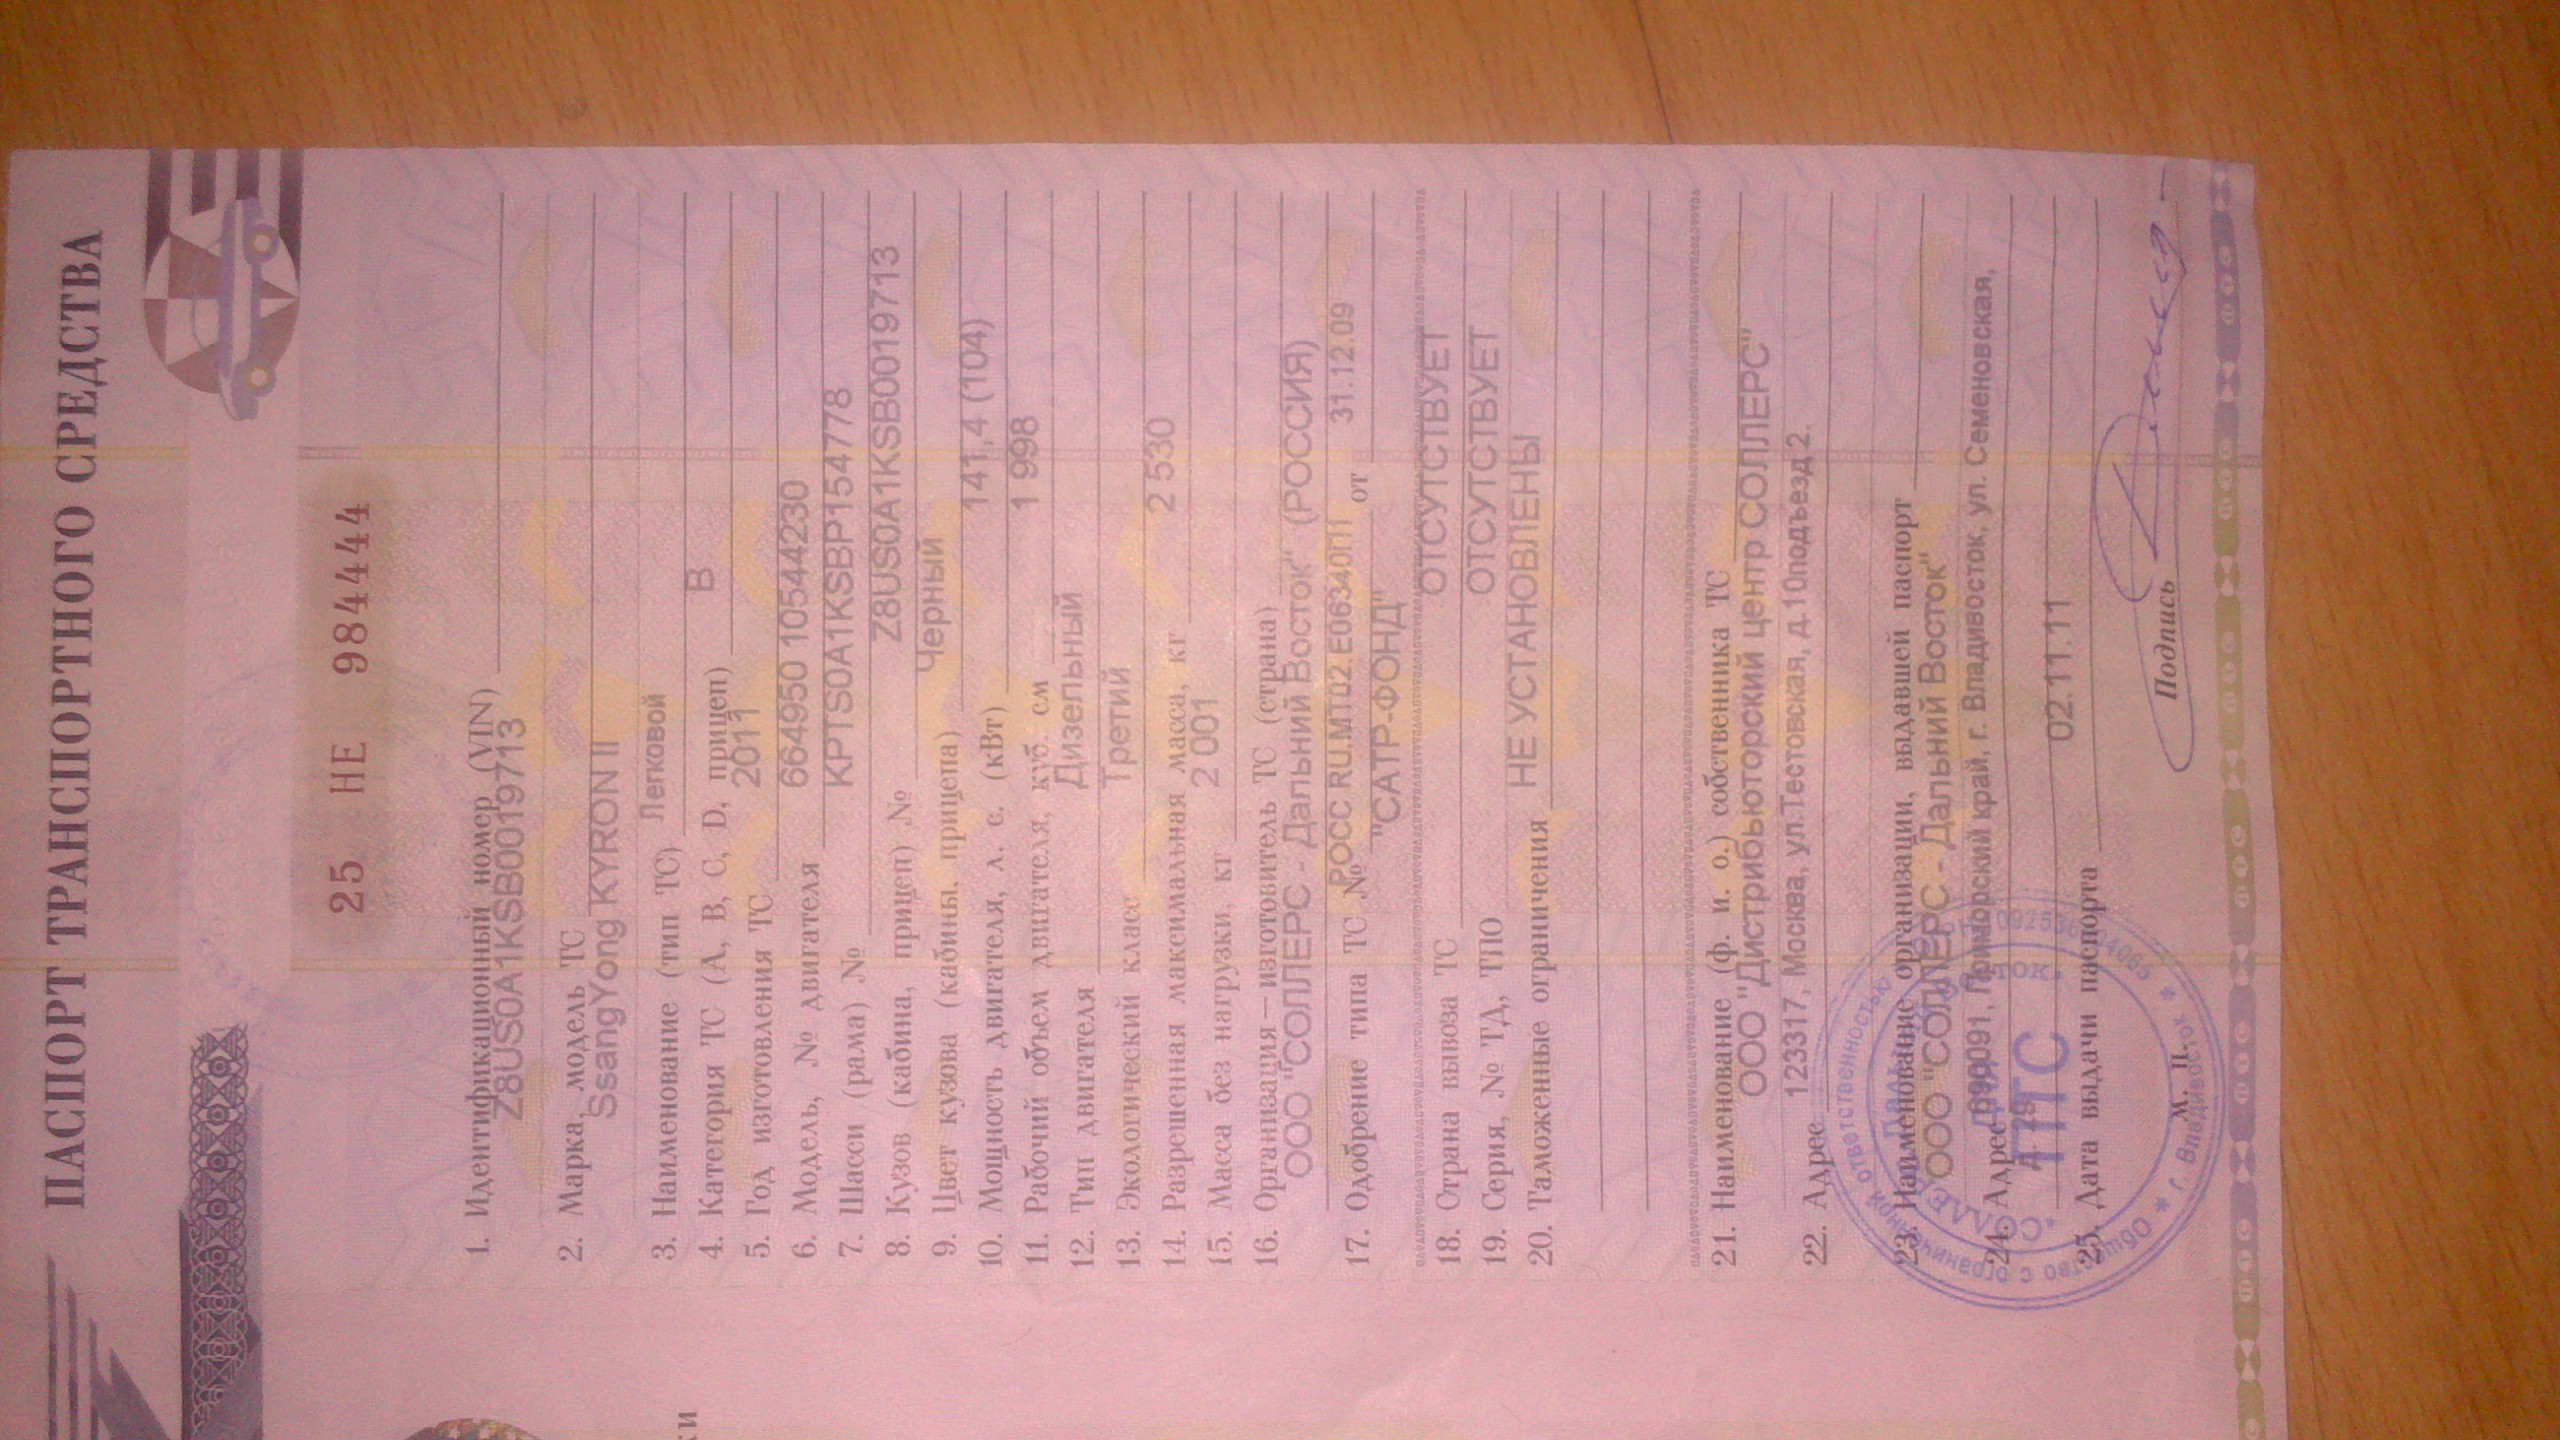 ПАСПОРТ ТРАНСПОРТНОГО СРЕДСТВА
25 НЕ 984444
1. Идентификационный номер (VIN)
Z8US0A1KSB0019713
2. Марка, модель ТС
SsangYong KYRON II
3. Наименование (тип ТС) Легковой
4. Категория ТС (А, В, С, D, прицеп) В
5. Год изготовления ТС 2011
6. Модель, № двигателя 664950 10544230
7. Шасси (рама) № KPTS0A1KSBP154778
8. Кузов (кабина, прицеп) № Z8US0A1KSB0019713
9. Цвет кузова (кабины, прицепа) Черный
10. Мощность двигателя, л. с. (кВт) 141,4 (104)
11. Рабочий объем двигателя, куб. см 1 998
12. Тип двигателя Дизельный
13. Экологический класс Третий
14. Разрешенная максимальная масса, кг 2 530
15. Масса без нагрузки, кг 2 001
16. Организация—изготовитель ТС (страна)
ООО "СОЛЛЕРС - Дальний Восток" (РОССИЯ)
17. Одобрение типа ТС № РОСС RU.MT02.E06340П1 от 31.12.09
"САТР-ФОНД"
18. Страна вывоза ТС ОТСУТСТВУЕТ
19. Серия, № ТД, ТПО ОТСУТСТВУЕТ
20. Таможенные ограничения НЕ УСТАНОВЛЕНЫ
21. Наименование (ф. и. о.) собственника ТС
ООО "Дистрибьюторский центр СОЛЛЕРС"
123317, Москва, ул.Тестовская, д.10подъезд2.
22. Адрес
23. Наименование организации, выдавшей паспорт
ООО "СОЛЛЕРС - Дальний Восток"
690091, Приморский край, г. Владивосток, ул. Семеновская,
24. Адрес
д. 29
25. Дата выдачи паспорта 02.11.11
М. П.
Подпись
Общество с ограниченной ответственностью
г. Владивосток
ПТС
ки